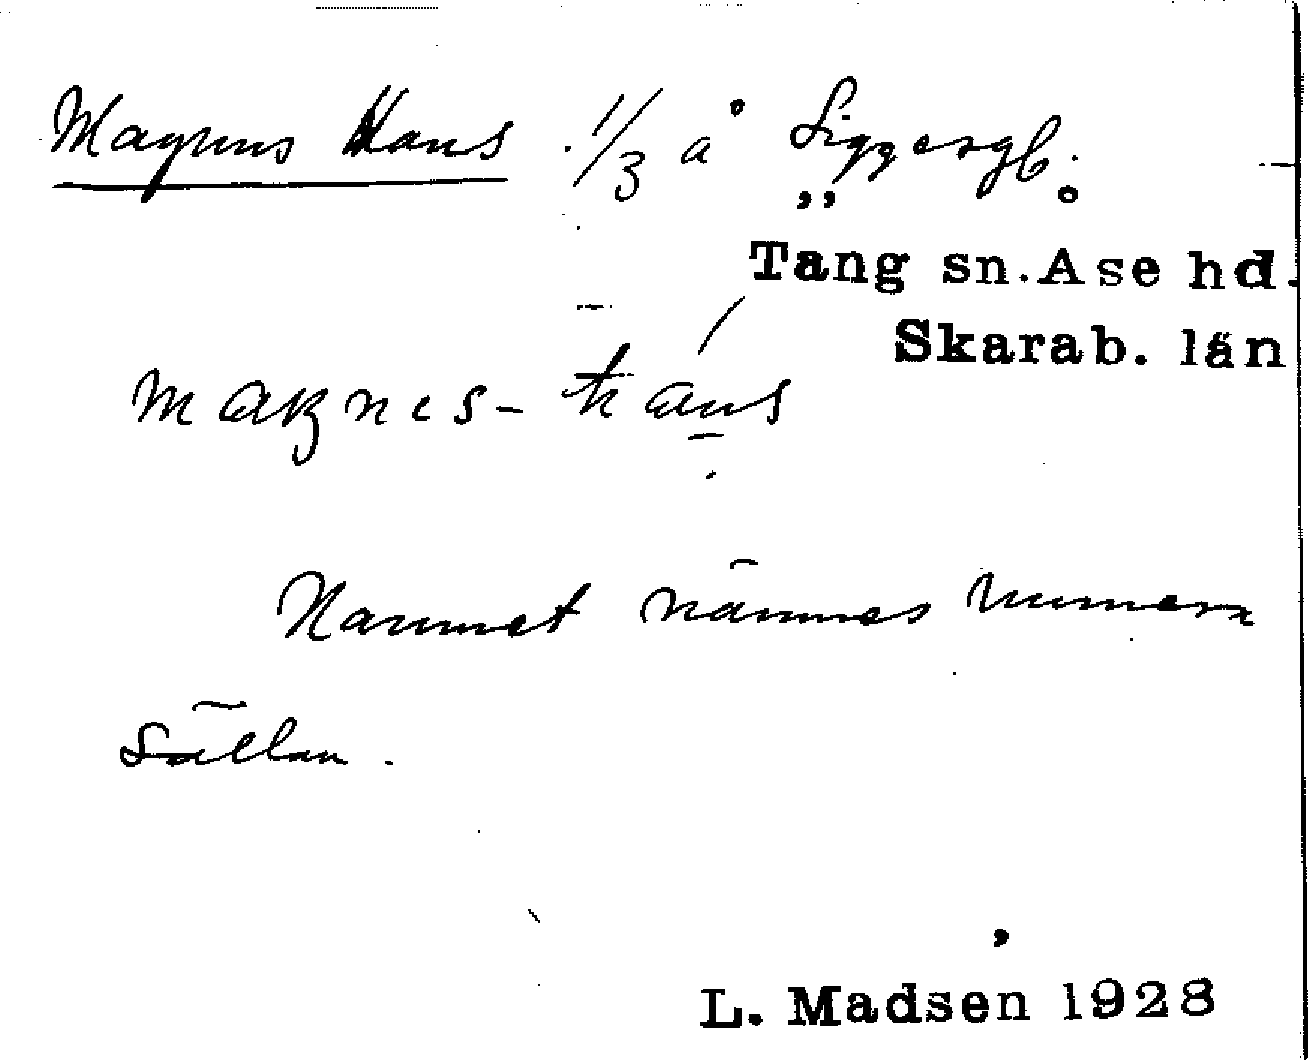 Magnus Hans 1/3 å Siggesgb.
Täng sn. Åse hd.
Skarab. län
maŋnes- hans
Namnet nämnes numera
sällan.
L. Madsen 1928